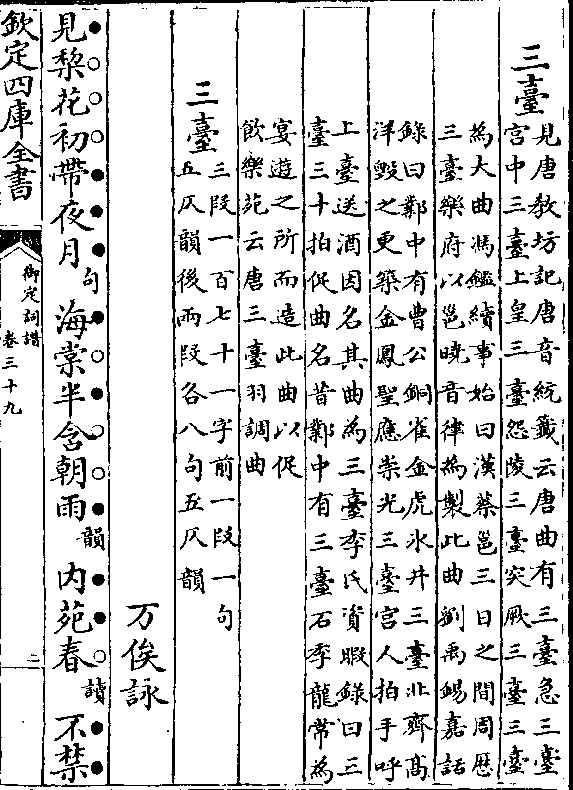 三臺
見唐教坊記唐音統籤云唐曲有三臺急三臺
宮中三臺上皇三臺怨陵三臺突厥三臺三臺
為大曲馮鑑續事始曰漢蔡邕三日之間周歴
三臺樂府以邕曉音律為製此曲劉禹錫嘉話
錄曰鄴中有曹公銅雀金虎氷井三臺北齊髙
洋毁之更築金鳳聖應崇光三臺宮人拍手呼
上臺送酒因名其曲為三臺李氏資暇錄曰三
臺三十拍促曲名昔鄴中有三臺石季龍常為
宴遊之所而造此曲以促
飲樂苑云唐三臺羽調曲
三臺
三段一百七十一字前一段一句
五仄韻後兩段各八句五仄韻
万俟詠
見棃花初帶夜月句海棠半含朝雨韻内苑春讀不禁
欽定四庫全書
御定詞譜
卷三十九
二